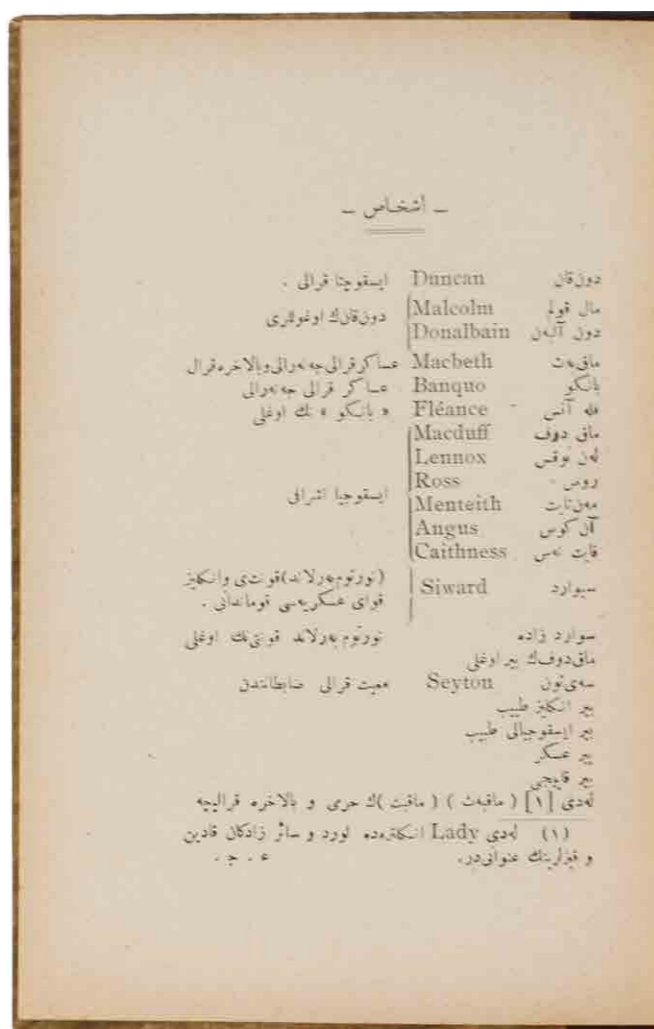 ـ أشخـاص ـ
دون‌قان Duncan ايسقوچيا قرالى .
مال قولم Malcolm
دون‌قانك اوغوللرى
دون آلبه‌ن Donalbain
ماق‌به‌ث Macbeth عساكر قرالى جه‌نه‌رالى وبالاخره قرال
بانكو Banquo عساكر قرالى جه‌نه‌رالى
فله آنس Fléance « بانكو » نك اوغلى
ماق دوف Macduff
له‌ن نوقس Lennox
روس Ross
ايسقوچيا اشرافى
مه‌ن‌تايت Menteith
آن كوس Angus
قايت نه‌س Caithness
سيوارد Siward (نورتومبه‌رلاند) قونتى و انكليز
قواى عسكريه‌سى قوماندانى .
سوارد زاده نورتوم به‌رلاند قونتى‌نك اوغلى
ماق‌دوفك بير اوغلى
سه‌ى‌تون Seyton معيت قرالى ضابطانندن
بير انكليز طبيب
بير ايسقوچيالى طبيب
بير عسكر
بير قاپيجى
له‌دى [١] ( ماقبه‌ث ) ( ماقبث )ك حرمى و بالاخره قراليچه
(١) له‌دى Lady انكلتره‌ده لورد و سائر زادكان قادين
و قيزلرينك عنوانى‌در. ع . ج .